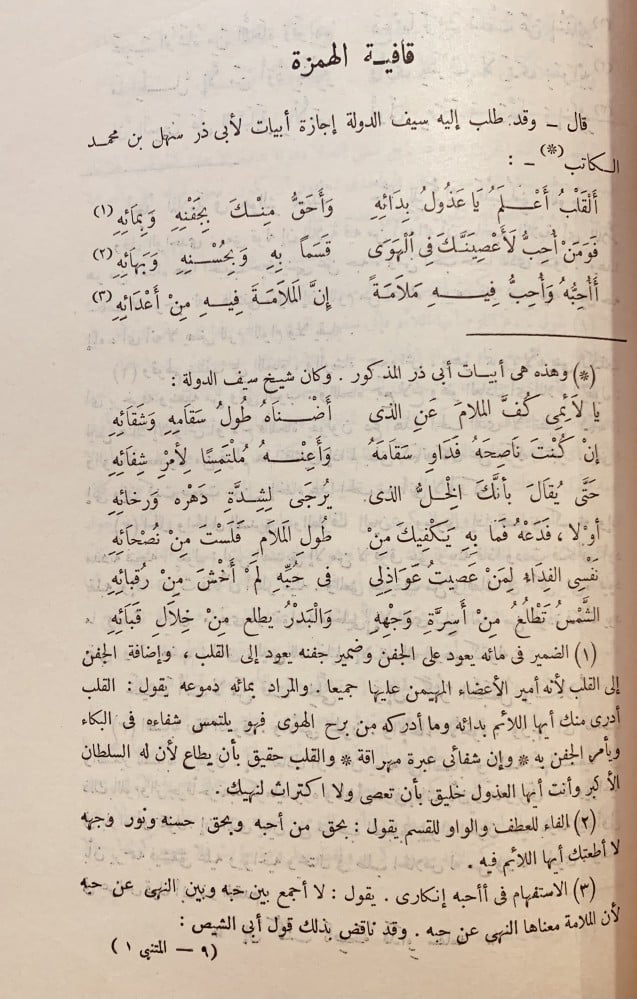 قافية الهمزة
قال – وقد طلب إليه سيف الدولة إجازة أبيات لأبى ذر سهل بن محمد
الكاتب(*) – :
أَلْقَلْبُ أَعْلَمُ يَا عَذُولُ بِدَائِهِ وَأَحَقُّ مِنْكَ بِجَفْنِهِ وَبِمَائِهِ (١)
فَوَمَنْ أُحِبُّ لَأَعْصِيَنَّكَ فِى الْهَوَى قَسَمًا بِهِ وَبِحُسْنِهِ وَبَهَائِهِ (٢)
أَأُحِبُّهُ وَأُحِبُّ فِيهِ مَلَامَةً إِنَّ الْمَلَامَةَ فِيهِ مِنْ أَعْدَائِهِ (٣)
(*) وهذه هى أبيات أبى ذر المذكور . وكان شيخ سيف الدولة :
يا لَائِمِى كُفَّ المَلامَ عَنِ الذى أَضْنَاهُ طُولُ سَقَامِهِ وَشَقَائِهِ
إنْ كُنْتَ نَاصِحَهُ فَدَاوِ سَقَامَهُ وَأَعِنْهُ مُلْتَمِسًا لِأَمْرِ شِفَائِهِ
حَتَّى يُقَالَ بأنَّكَ الخِلُّ الذى يُرْجَى لِشِدَّةِ دَهْرِه وَرخائِهِ
أوْ لا ، فَدَعْهُ فَمَا بِهِ يَكْفِيكَ مِنْ طُولِ المَلَامِ فَلَسْتَ مِنْ نُصْحَائِهِ
نَفْسِى الفِدَاءُ لِمَنْ عَصَيتُ عَوَاذِلِى فى حُبِّهِ لَمْ أَخْشَ مِنْ رُقَبائِهِ
الشَّمْسُ تَطْلُعُ مِنْ أَسِرَّةِ وَجْهِهِ وَالْبَدْرُ يطلع مِنْ خِلَالِ قَبَائِهِ
(١) الضمير فى مائه يعود على الجفن وضمير جفنه يعود إلى القلب ، وإضافة الجفن
إلى القلب لأنه أمير الأعضاء المهيمن عليها جميعا . والمراد بمائه دموعه يقول : القلب
أدرى منك أيها اللائم بدائه وما أدركه من برح الهوى فهو يلتمس شفاءه فى البكاء
ويأمر الجفن به * وإن شفائى عبرة مهراقة * والقلب حقيق بأن يطاع لأن له السلطان
الأكبر وأنت أيها العذول خليق بأن تعصى ولا اكتراث لنهيك .
(٢) الفاء للعطف والواو للقسم يقول : بحق من أحبه وبحق حسنه ونور وجهه
لا أطعتك أيها اللائم فيه .
(٣) الاستفهام فى أأحبه إنكارى . يقول : لا أجمع بين حبه وبين النهى عن حبه
لأن الملامة معناها النهى عن حبه . وقد ناقض بذلك قول أبى الشيص :
(٩ – المتنبى ١)